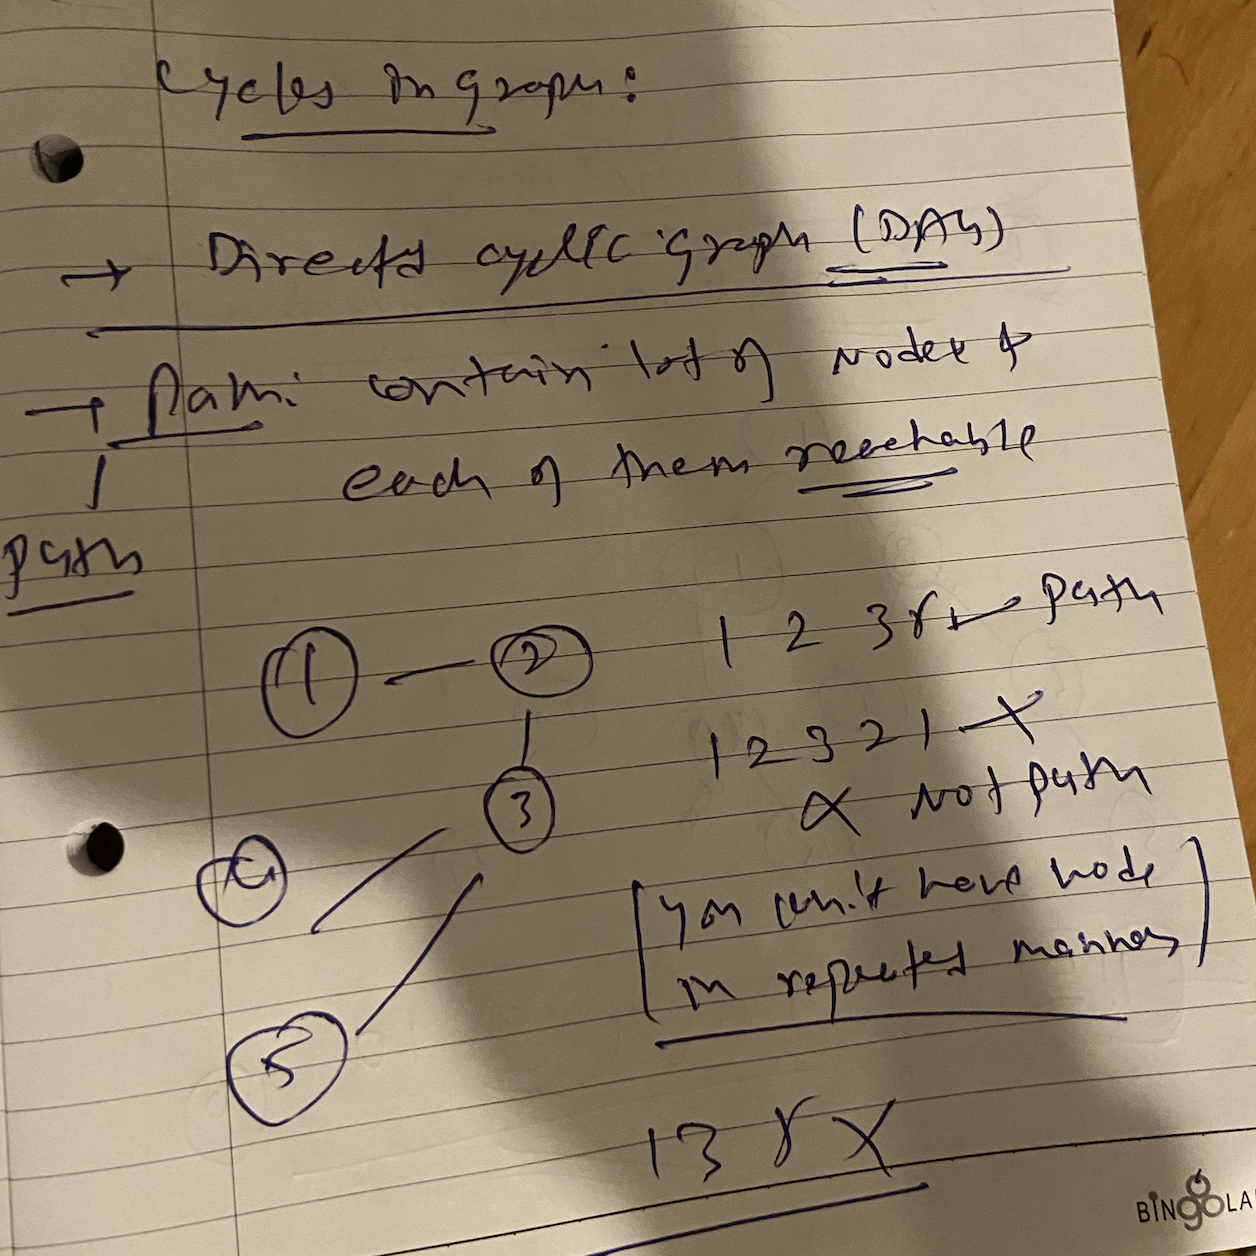 Cycles in graph:
→ Directed cyclic graph (DAG)
→ Path: contain lot of Nodes &
each of them reachable
Path
1 2
3
4
5
1 2 3 ✓ Path
1 2 3 2 1 X
Not path
[you can't have node
in repeated manner]
1 3 X
BINGOLA